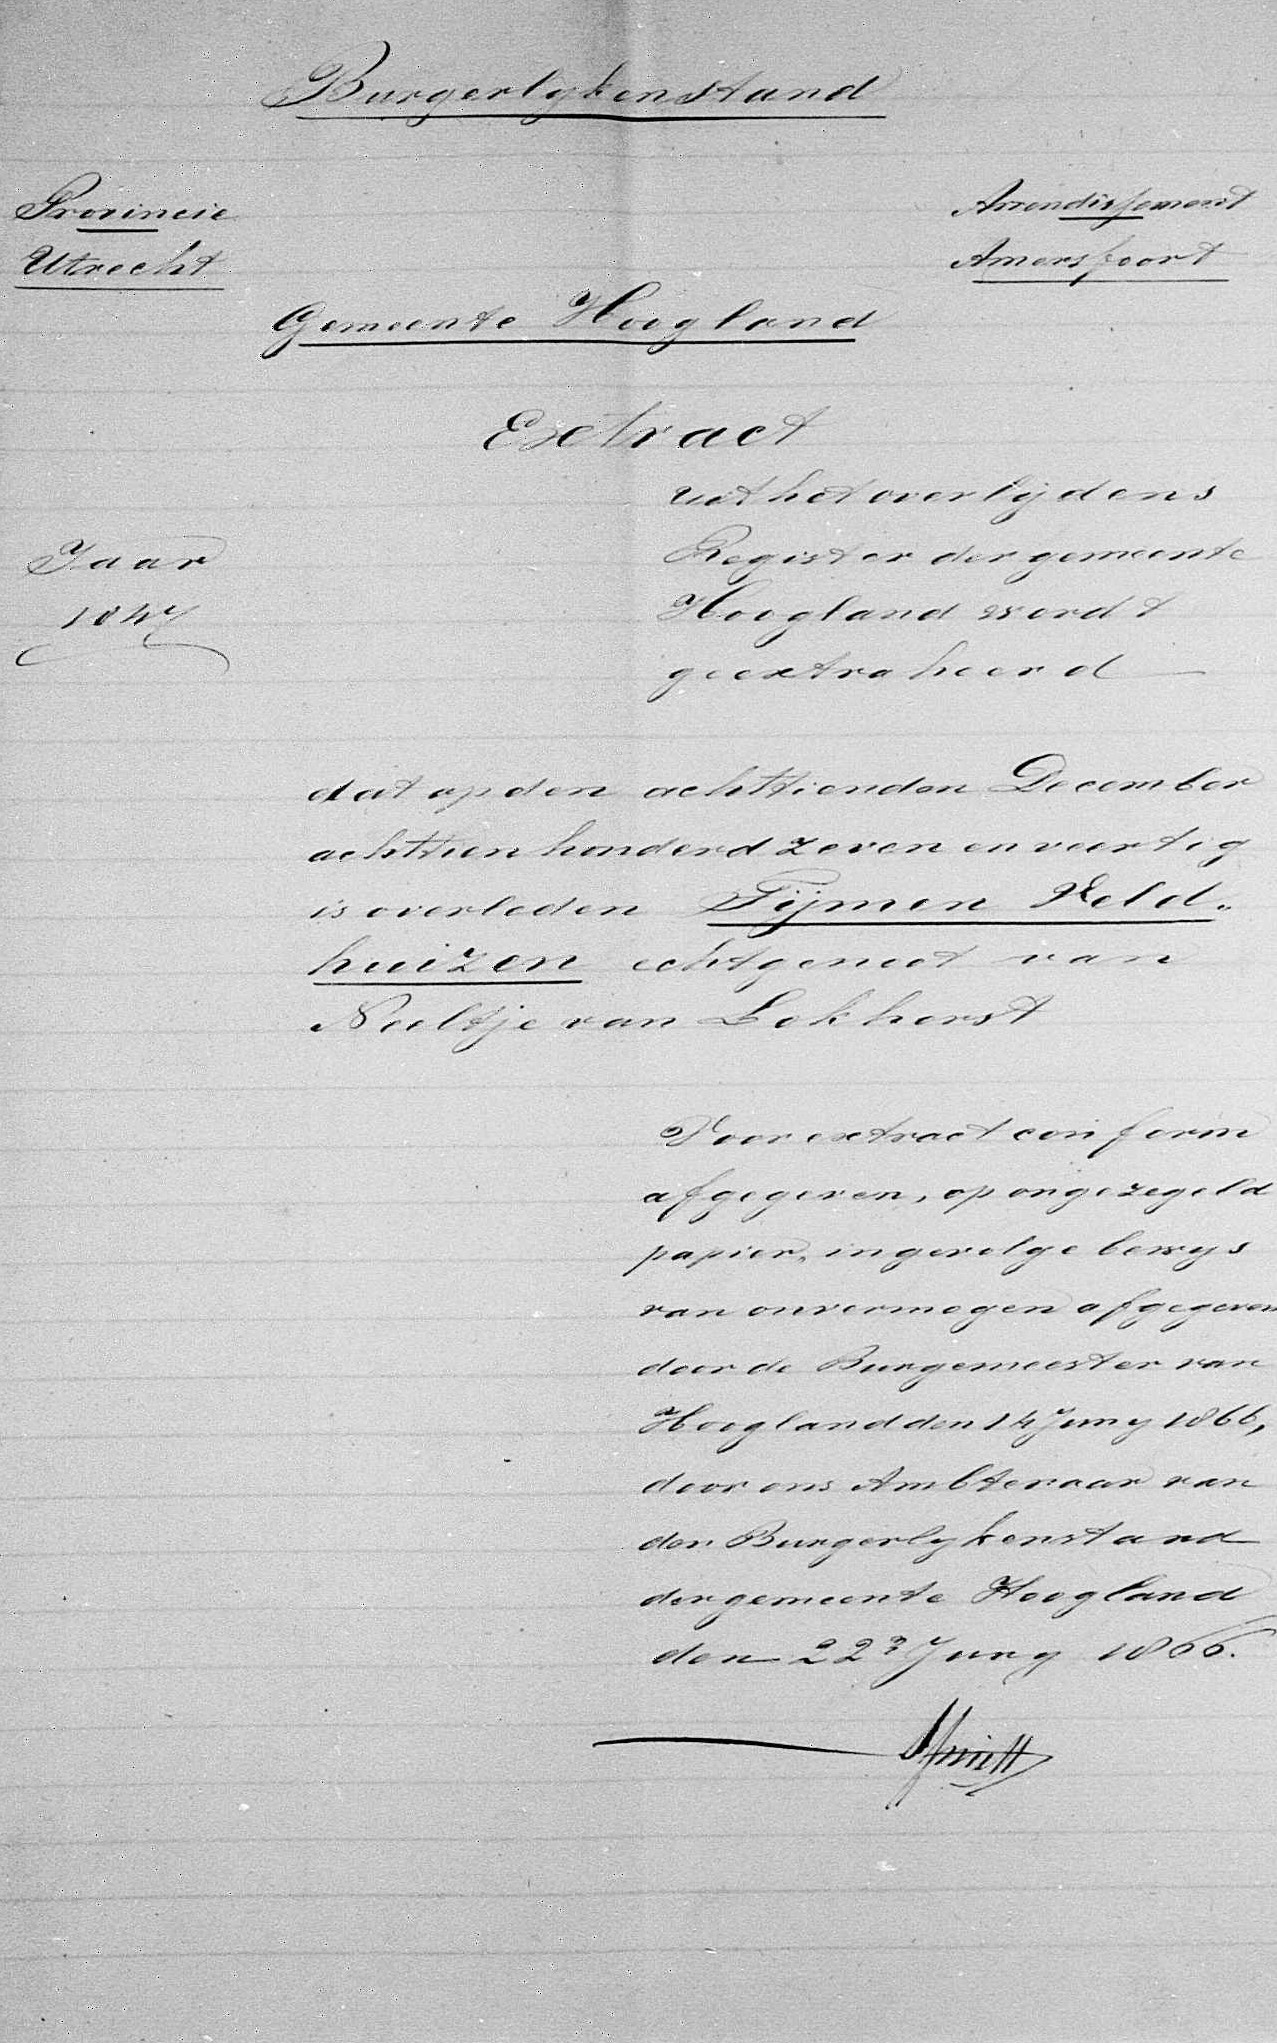 Burgerlykenstand
Provincie
Utrecht
Arrondissement
Amersfoort
Gemeente Hoogland
Extract
uit het overlijdens
Register der gemeente
Hoogland wordt
geextraheerd
Jaar
1847
dat op den achttienden December
achttien honderd zeven en veertig
is overleden Tijmen Veld„
huizen echtgenoot van
Neeltje van Lokhorst
Voor extract conform
afgegeven, op ongezegeld
papier, ingevolge bewys
van onvermogen afgegeven
door de Burgemeester van
Hoogland den 14 Juny 1866,
door ons Ambtenaar van
den Burgerlykenstand
der gemeente Hoogland
den 22 Juny 1866.